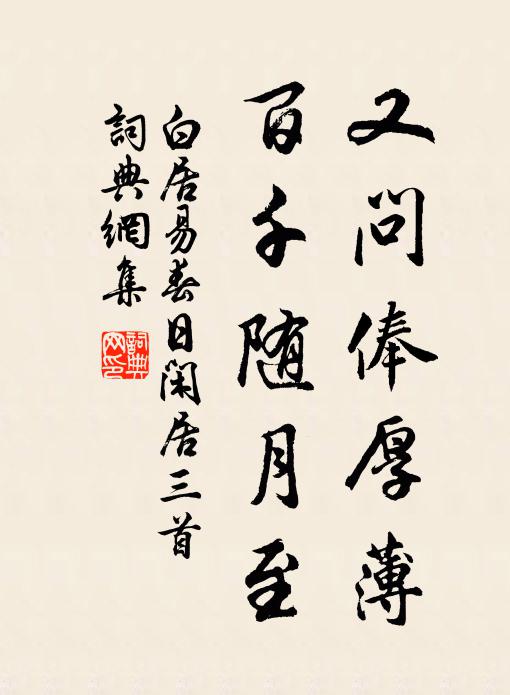 又问俸厚薄
百千随月至
白居易春日闲居三首
詞典網集
詞典網印